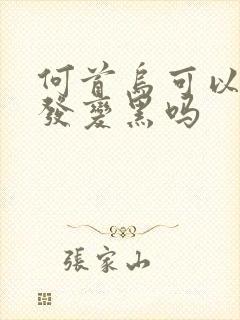 何首乌可以
發變黑吗
張家山